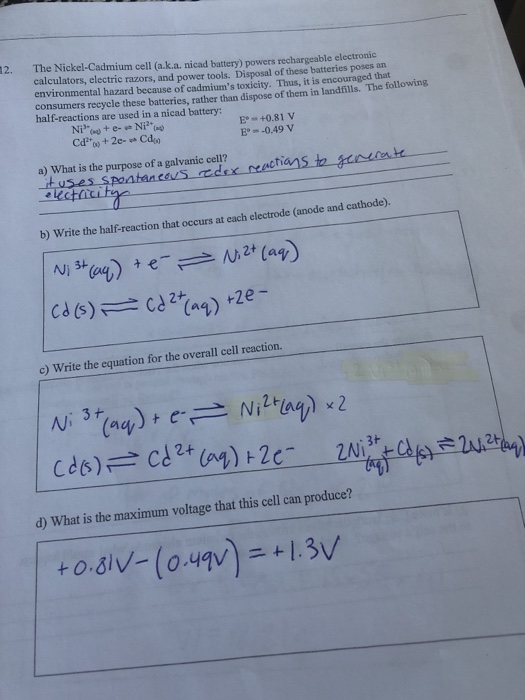 12. The Nickel-Cadmium cell (a.k.a. nicad battery) powers rechargeable electronic
calculators, electric razors, and power tools. Disposal of these batteries poses an
environmental hazard because of cadmium's toxicity. Thus, it is encouraged that
consumers recycle these batteries, rather than dispose of them in landfills. The following
half-reactions are used in a nicad battery:
Ni³⁺(aq) + e- ⇌ Ni²⁺(aq) E° = +0.81 V
Cd²⁺(s) + 2e- ⇌ Cd(s) E° = -0.49 V
a) What is the purpose of a galvanic cell?
it uses spontaneous redox reactions to generate
electricity
b) Write the half-reaction that occurs at each electrode (anode and cathode).
Ni³⁺(aq) + e⁻ ⇌ Ni²⁺(aq)
Cd(s) ⇌ Cd²⁺(aq) + 2e⁻
c) Write the equation for the overall cell reaction.
Ni³⁺(aq) + e⁻ ⇌ Ni²⁺(aq) x2
Cd(s) ⇌ Cd²⁺(aq) + 2e⁻ 2Ni³⁺(aq) + Cd(s) ⇌ 2Ni²⁺(aq)
d) What is the maximum voltage that this cell can produce?
+0.81V-(0.49V) = +1.3V